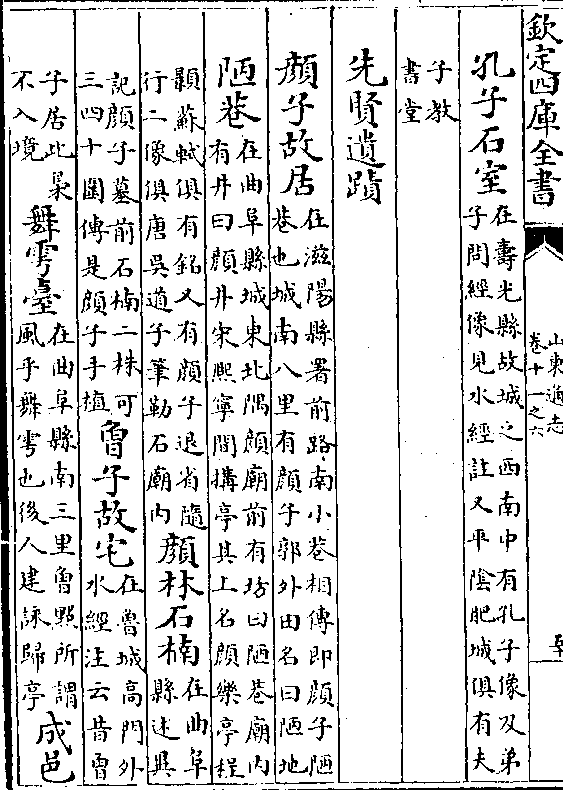 欽定四庫全書
山東通志
卷十一之六
孔子石室
在壽光縣故城之西南中有孔子像及弟
子問經像見水經註又平陰肥城俱有夫
子教
書堂
先賢遺蹟
顔子故居
在滋陽縣署前路南小巷相傳即顔子陋
巷也城南八里有顔子郭外田名曰陋地
陋巷
在曲阜縣城東北隅顔廟前有坊曰陋巷廟内
有井曰顔井宋熙寧間搆亭其上名顔樂亭程
顥蘇軾俱有銘又有顔子退省隨
行二像俱唐吳道子筆勒石廟内
顔林石楠
在曲阜
縣述異
記顔子墓前石楠二株可
三四十圍傳是顔子手植
曾子故宅
在魯城高門外
水經注云昔曾
子居此梟
不入境
舞雩臺
在曲阜縣南三里曾點所謂
風乎舞雩也後人建詠歸亭
成邑